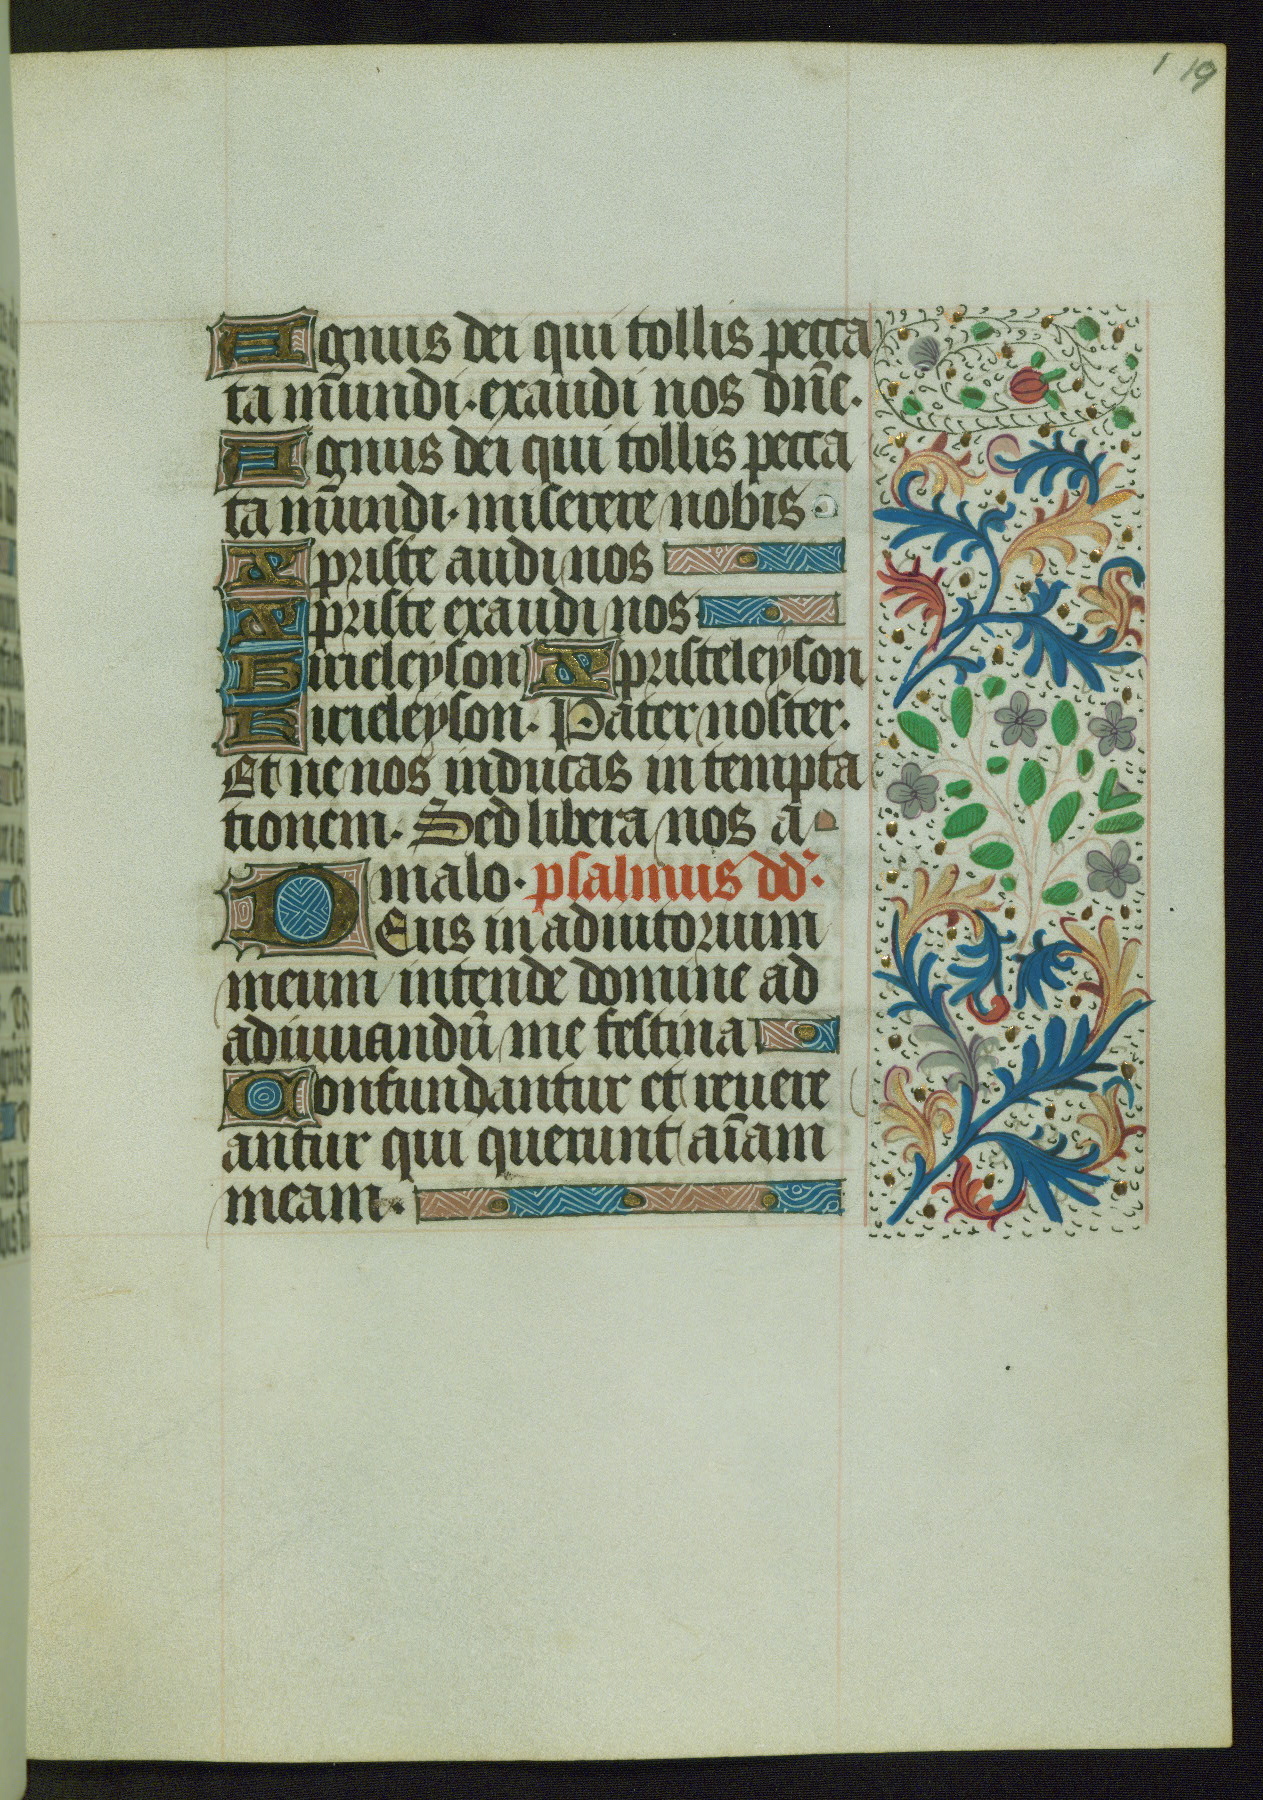 119
Agnus dei qui tollis pecca
ta mūndi. exaudi nos dn̄e.
Agnus dei qui tollis pecca
ta mūndi. miserere nobis.
Xpriste audi nos
Xpriste exaudi nos
Kirieleyson Xpristeleyson
Kirieleyson. Pater noster.
Et ne nos inducas in tempta
tionem. Sed libera nos a
malo. psalmus dd.
DEus in adiutorium
meum intende domine ad
adiuuandū me festina
Confundantur et reuere
antur qui querunt aīam
meam.